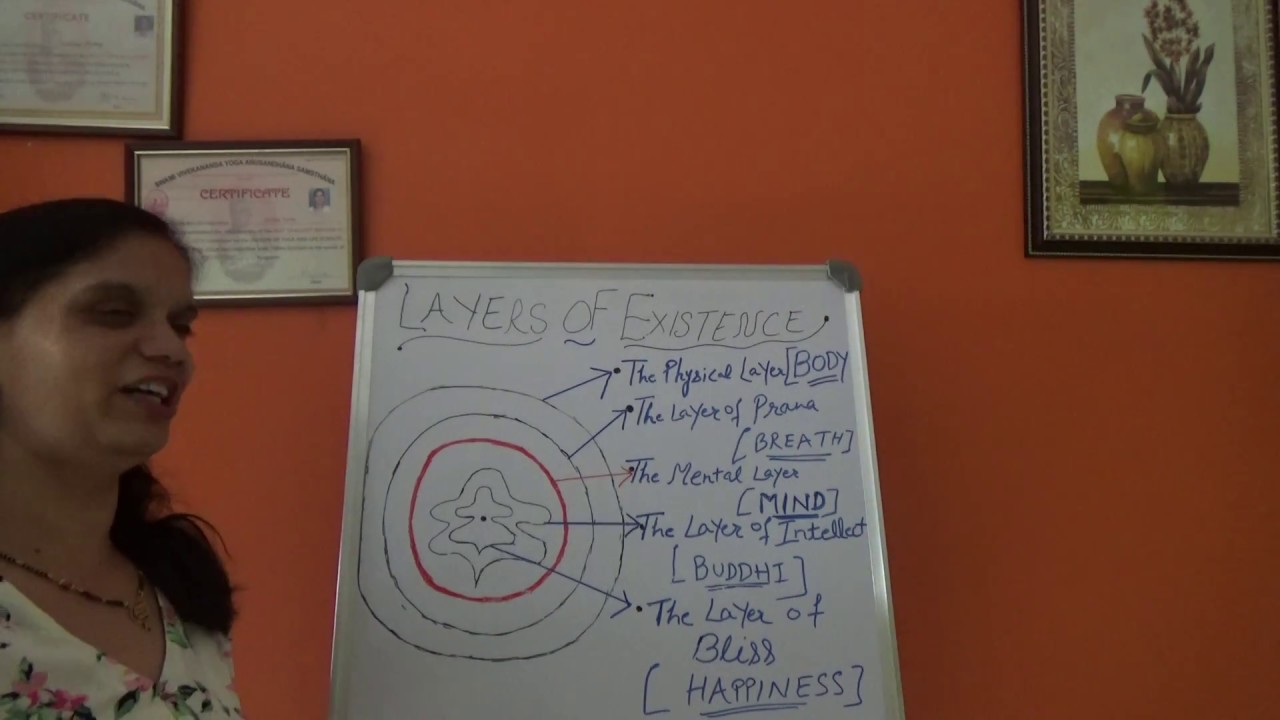 CERTIFICATE
SWAMI VIVEKANANDA YOGA ANUSANDHĀNA SAMSTHĀNA
CERTIFICATE
LAYERS OF EXISTENCE
The Physical Layer [BODY
The Layer of Prana
[BREATH]
The Mental Layer
[MIND]
The Layer of Intellect
[BUDDHI]
The Layer of
Bliss
[HAPPINESS]